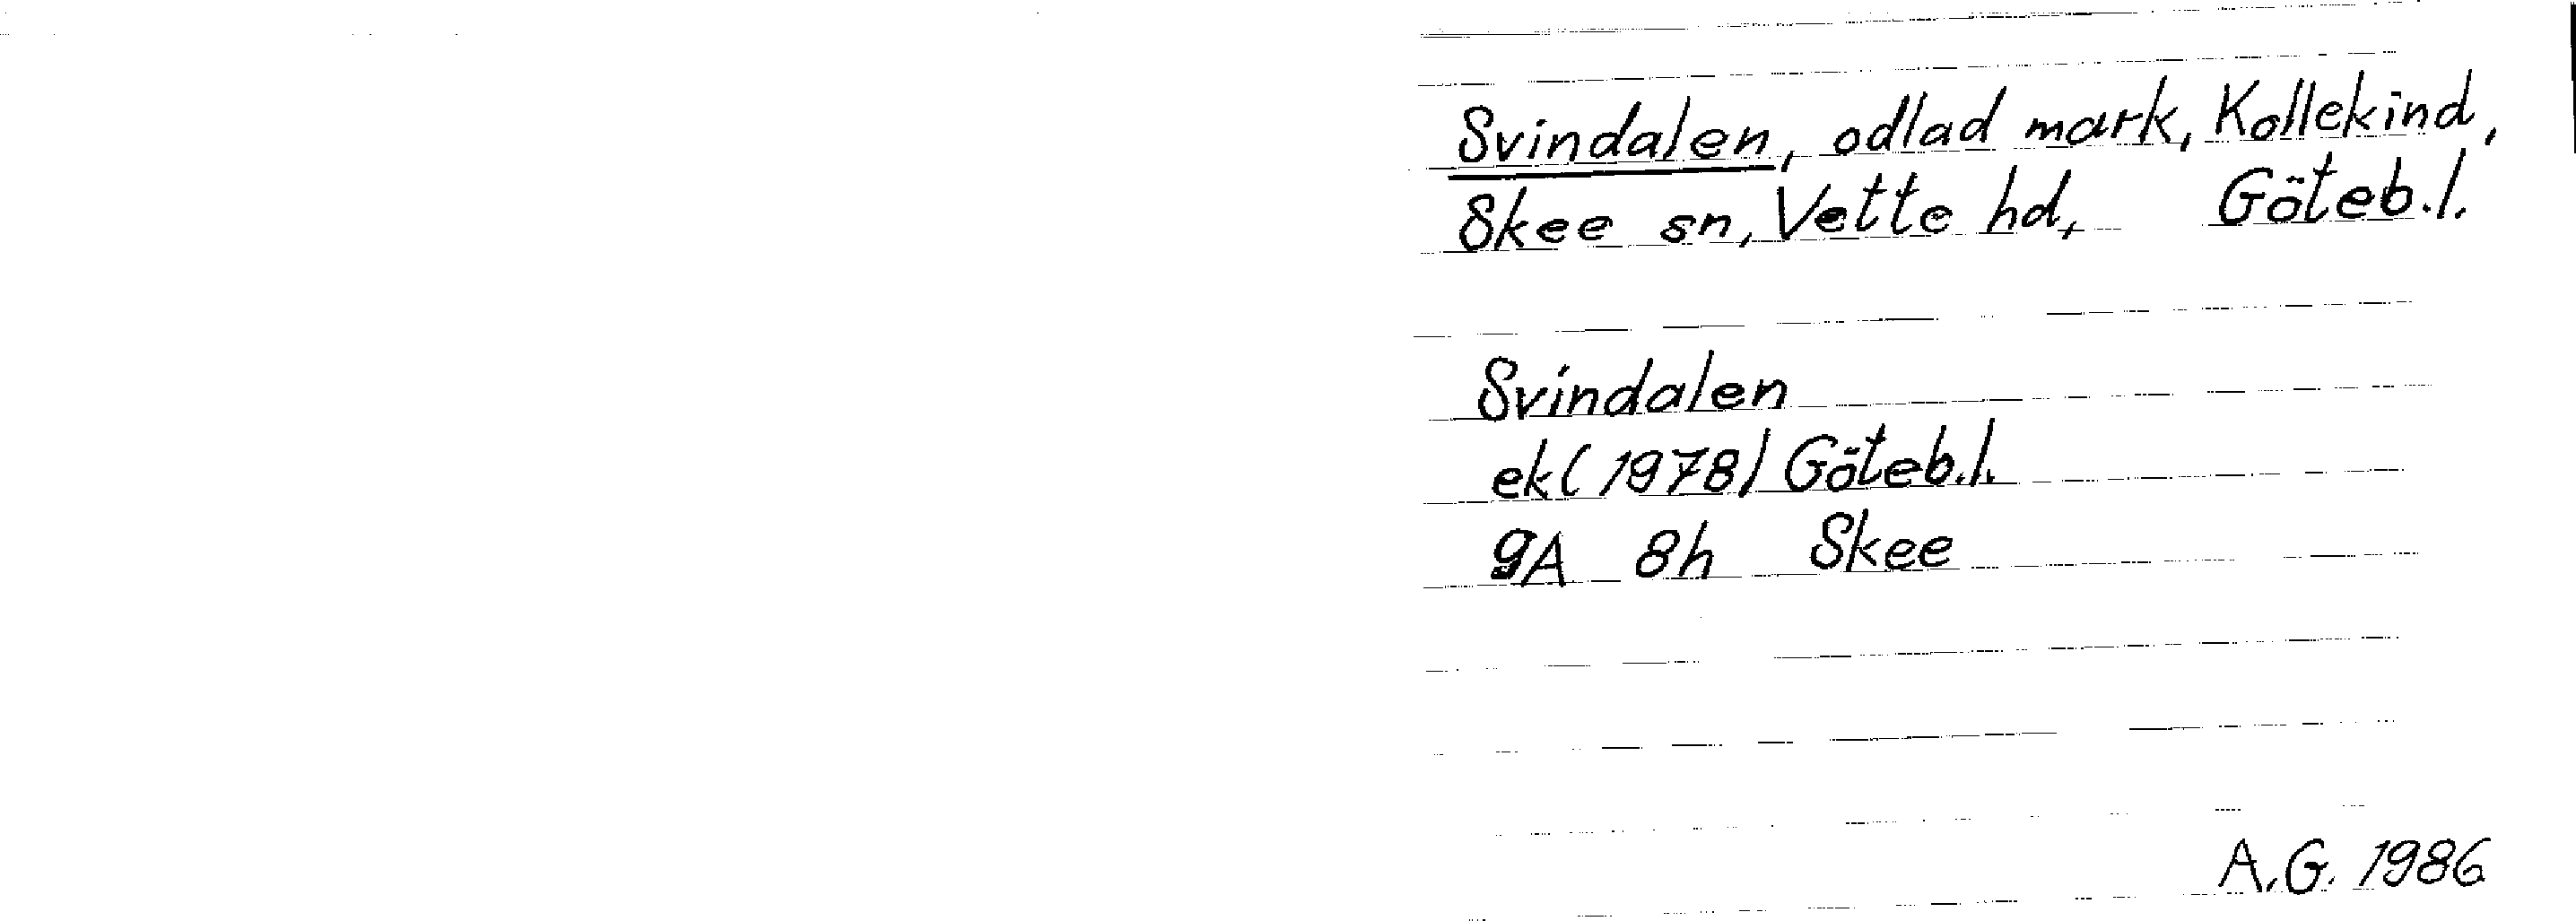 Svindalen, odlad mark, Kollekind,
Skee sn, Vette hd, Göteb.l.
Svindalen
ek(1978) Göteb.l.
9A 8h Skee
A.G. 1986